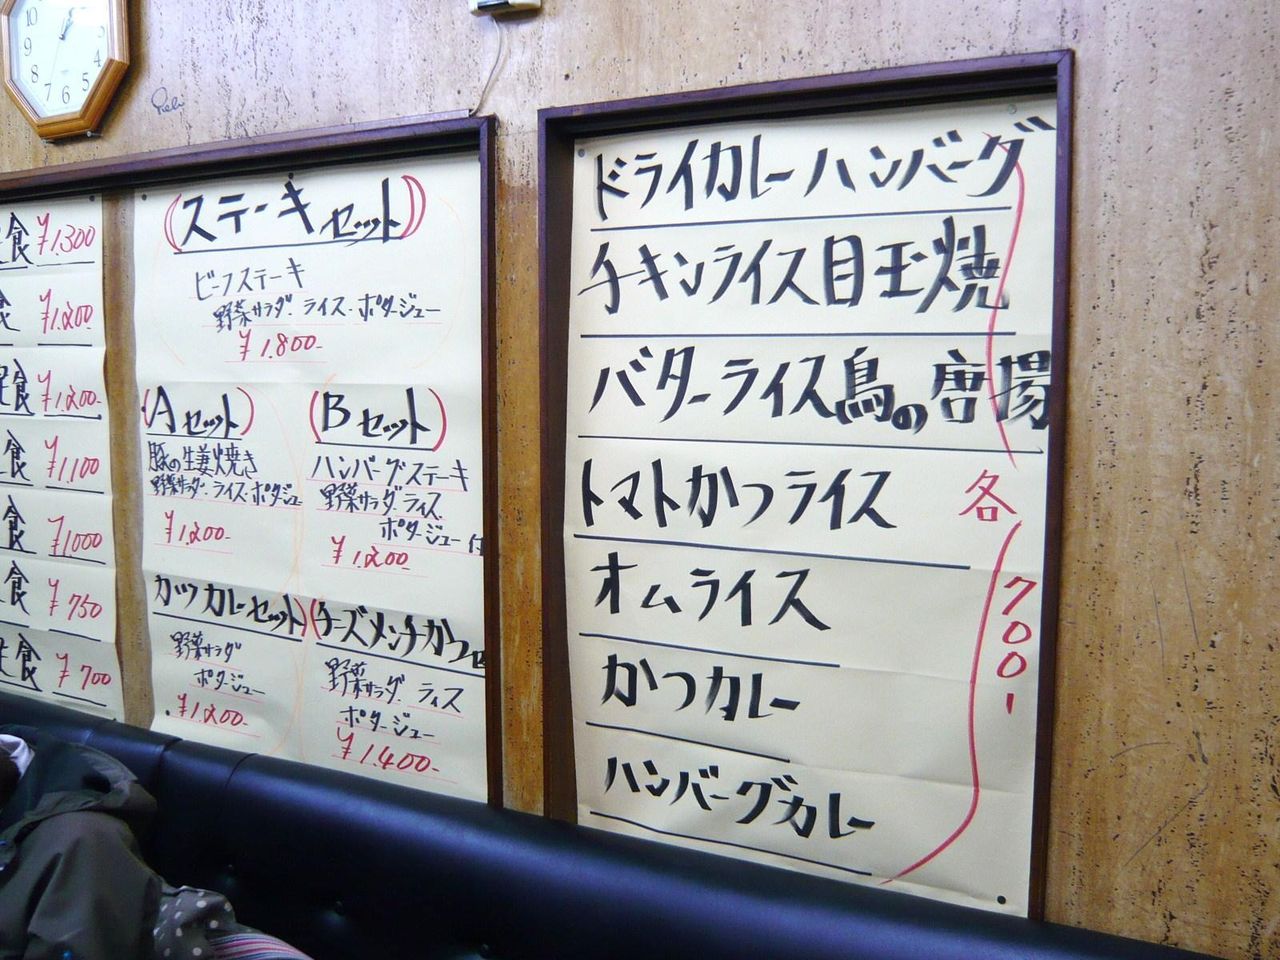 10
9
8
7
6
5
4
3
食 ¥1.300
食 ¥1.200
定食 ¥1.200
食 ¥1,100
食 ¥1000
食 ¥750
定食 ¥700
(ステーキセット)
ビーフステーキ
野菜サラダ・ライス・ポタージュー
¥1.800-
(Aセット)
豚の生姜焼き
野菜サラダ・ライス・ポタジュ
¥1.200-
(Bセット)
ハンバーグステーキ
野菜サラダ・ライス
ポタージュー付
¥1.200
カツカレーセット)
野菜サラダ
ポタージュー
¥1.200-
(チーズメンチかつセ
野菜サラダ・ライス
ポタージュー
¥1.400-
ドライカレーハンバーグ
チキンライス目玉焼
バターライス鳥の唐揚
トマトかつライス
オムライス
かつカレー
ハンバーグカレー
各
700-